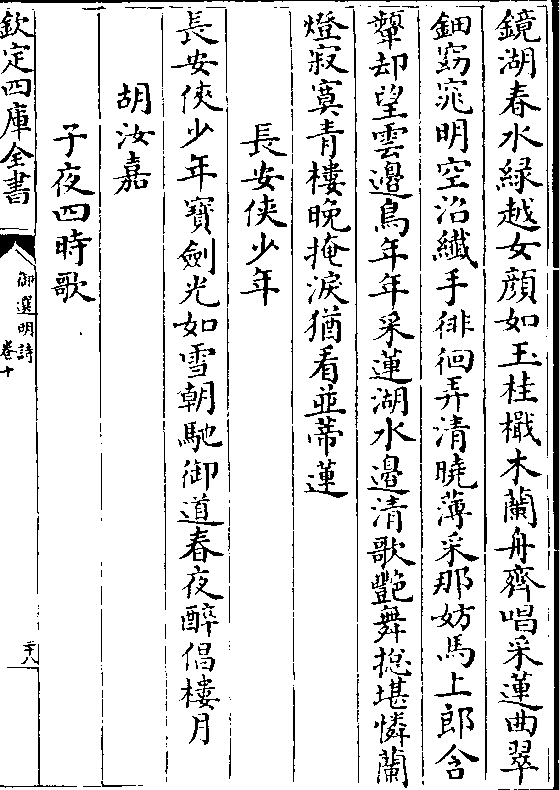 鏡湖春水緑越女顔如玉桂檝木蘭舟齊唱采蓮曲翠
鈿窈窕明空沿纖手徘徊弄清曉薄采那妨馬上郎含
顰却望雲邊鳥年年采蓮湖水邉清歌艷舞揔堪憐蘭
燈寂寞青樓晚掩淚猶看並蒂蓮
長安俠少年
長安俠少年寶劍光如雪朝馳御道春夜醉倡樓月
胡汝嘉
子夜四時歌
欽定四庫全書
御選明詩
卷十
二十八